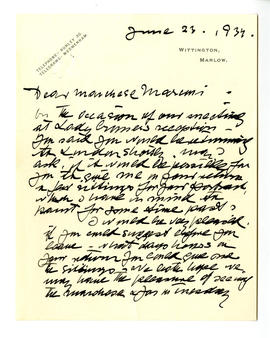 June 23. 1934.
TELEPHONE: HURLEY 30.
TELEGRAMS: MEDMENHAM.
WITTINGTON,
MARLOW.
Dear Marchese Marconi -
On the occasion of our meeting
at Lady reception -
You said you would be returning
to London shortly. May I
ask if it would be possible for
you to give me on your return
a few sittings for your portrait,
which I have in mind to
paint for some time past?
I would be very pleased
if you could suggest before you
leave - what days hours on
your return you could give me
the sittings - We both hope we
may have the pleasure of seeing
the Marchesa & you on Tuesday